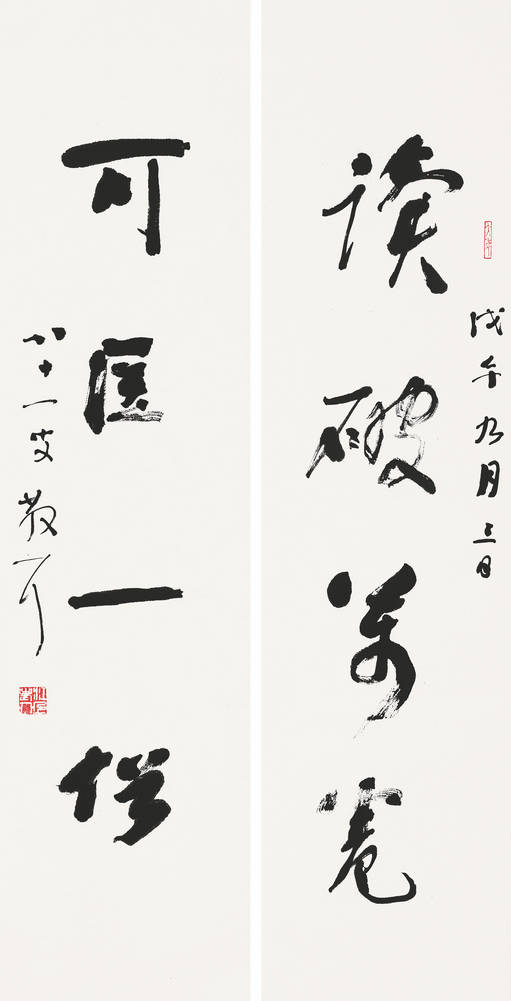 戊午九月三日
读破萬卷
可医一俗
八十一叟散耳